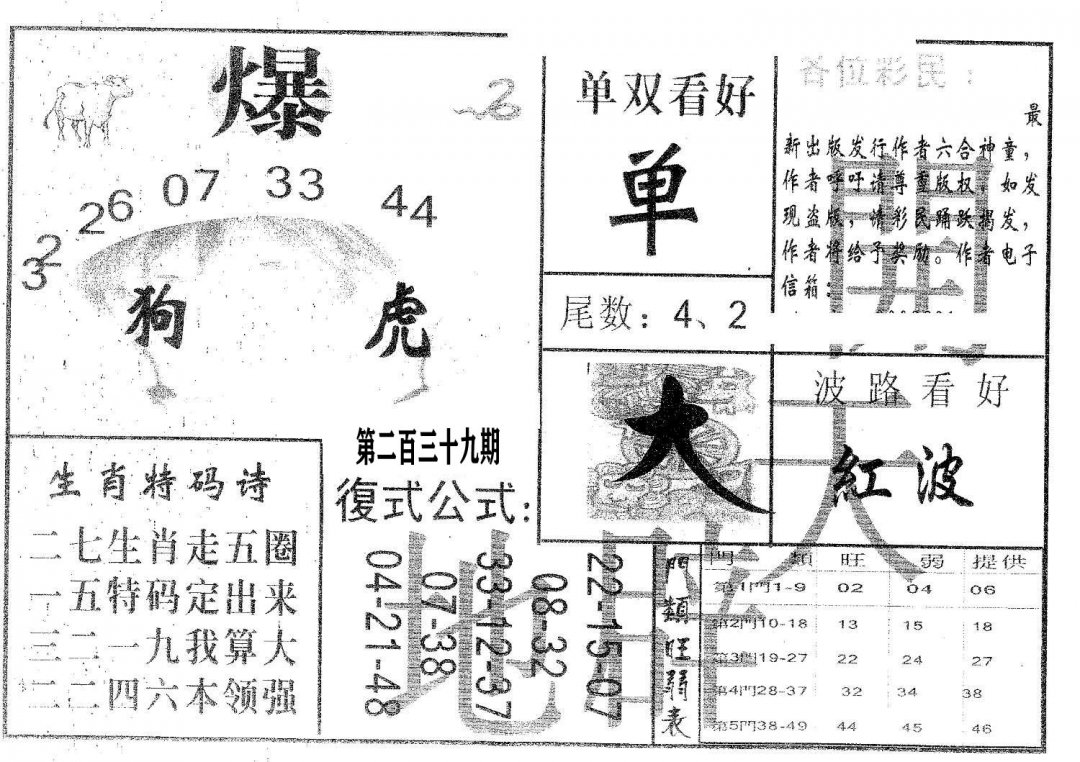 爆
2
32
26
07
33
44
狗
虎
单双看好
单
尾数：4、2
各位彩民：
最
新出版发行作者六合神童，
作者呼吁请尊重版权。如发
现盗版，情彩民踊跃揭发，
作者将给予奖励。作者电子
信箱：
大
波路看好
紅波
生肖特码诗
二七生肖走五圈
一五特码定出来
三二一九我算大
二二四六本领强
第二百三十九期
復式公式：
04-21-48
07-38
33-12-37
08-32
22-15-07
門類旺弱表
門 類 旺 弱 提供
第1門1-9 02 04 06
第2門10-18 13 15 18
第3門19-27 22 24 27
第4門28-37 32 34 38
第5門38-49 44 45 46